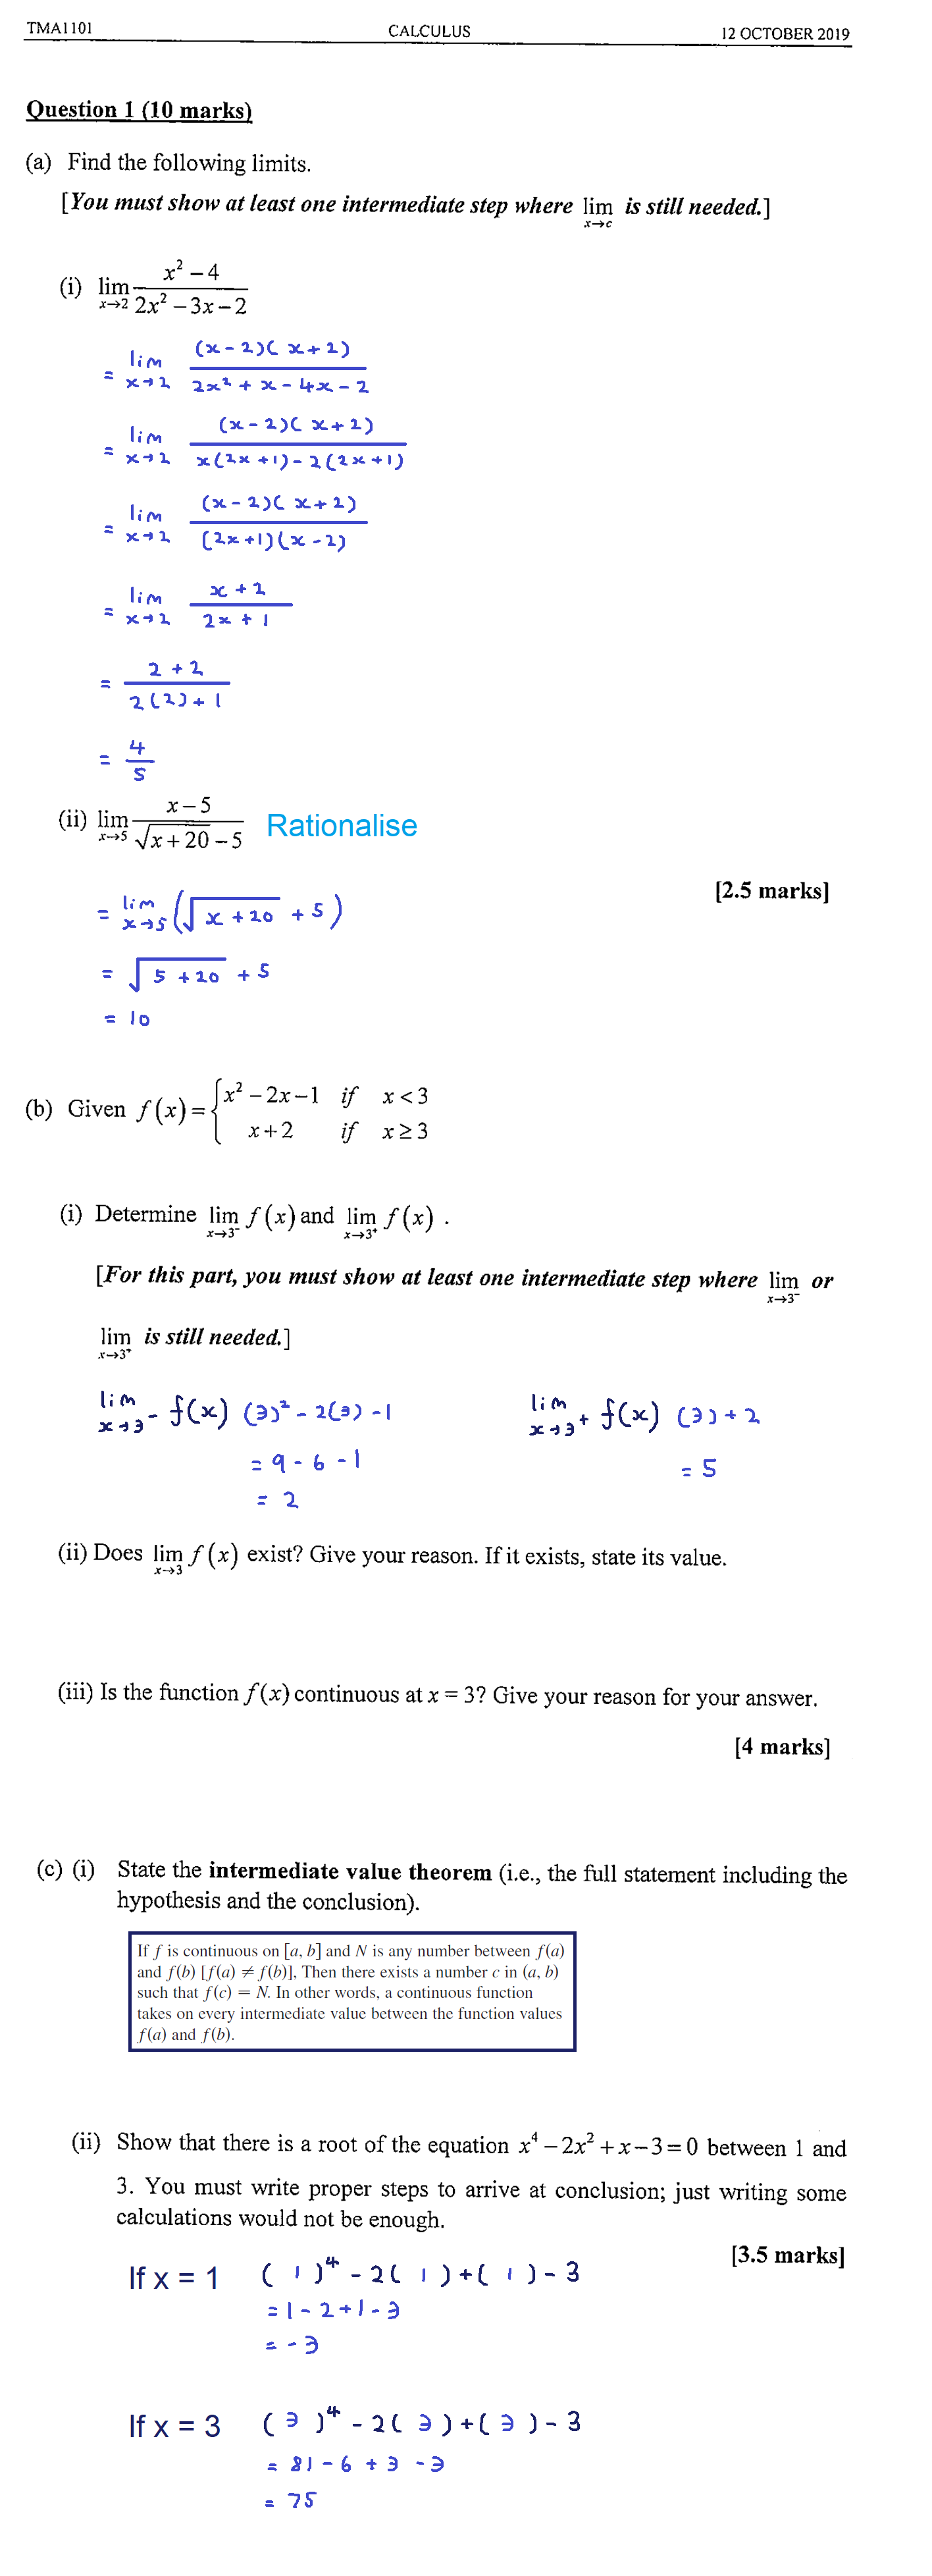 TMA1101 CALCULUS 12 OCTOBER 2019
Question 1 (10 marks)
(a) Find the following limits.
[You must show at least one intermediate step where lim x→c is still needed.]
(i) lim x→2 (x² − 4)/(2x² − 3x − 2)
= lim x→2 ((x − 2)(x + 2))/(2x² + x − 4x − 2)
= lim x→2 ((x − 2)(x + 2))/(x(2x + 1) − 2(2x + 1))
= lim x→2 ((x − 2)(x + 2))/((2x + 1)(x − 2))
= lim x→2 (x + 2)/(2x + 1)
= (2 + 2)/(2(2) + 1)
= 4/5
(ii) lim x→5 (x − 5)/(√(x + 20) − 5) Rationalise
[2.5 marks]
= lim x→5 (√(x + 20) + 5)
= √(5 + 20) + 5
= 10
(b) Given f(x) = { x² − 2x − 1 if x < 3
x + 2 if x ≥ 3
(i) Determine lim x→3⁻ f(x) and lim x→3⁺ f(x) .
[For this part, you must show at least one intermediate step where lim x→3⁻ or
lim x→3⁺ is still needed.]
lim x→3⁻ f(x) (3)² − 2(3) − 1 lim x→3⁺ f(x) (3) + 2
= 9 − 6 − 1 = 5
= 2
(ii) Does lim x→3 f(x) exist? Give your reason. If it exists, state its value.
(iii) Is the function f(x) continuous at x = 3? Give your reason for your answer.
[4 marks]
(c) (i) State the intermediate value theorem (i.e., the full statement including the
hypothesis and the conclusion).
If f is continuous on [a, b] and N is any number between f(a)
and f(b) [f(a) ≠ f(b)], Then there exists a number c in (a, b)
such that f(c) = N. In other words, a continuous function
takes on every intermediate value between the function values
f(a) and f(b).
(ii) Show that there is a root of the equation x⁴ − 2x² + x − 3 = 0 between 1 and
3. You must write proper steps to arrive at conclusion; just writing some
calculations would not be enough.
[3.5 marks]
If x = 1 (1)⁴ − 2(1) + (1) − 3
= 1 − 2 + 1 − 3
= −3
If x = 3 (3)⁴ − 2(3) + (3) − 3
= 81 − 6 + 3 − 3
= 75